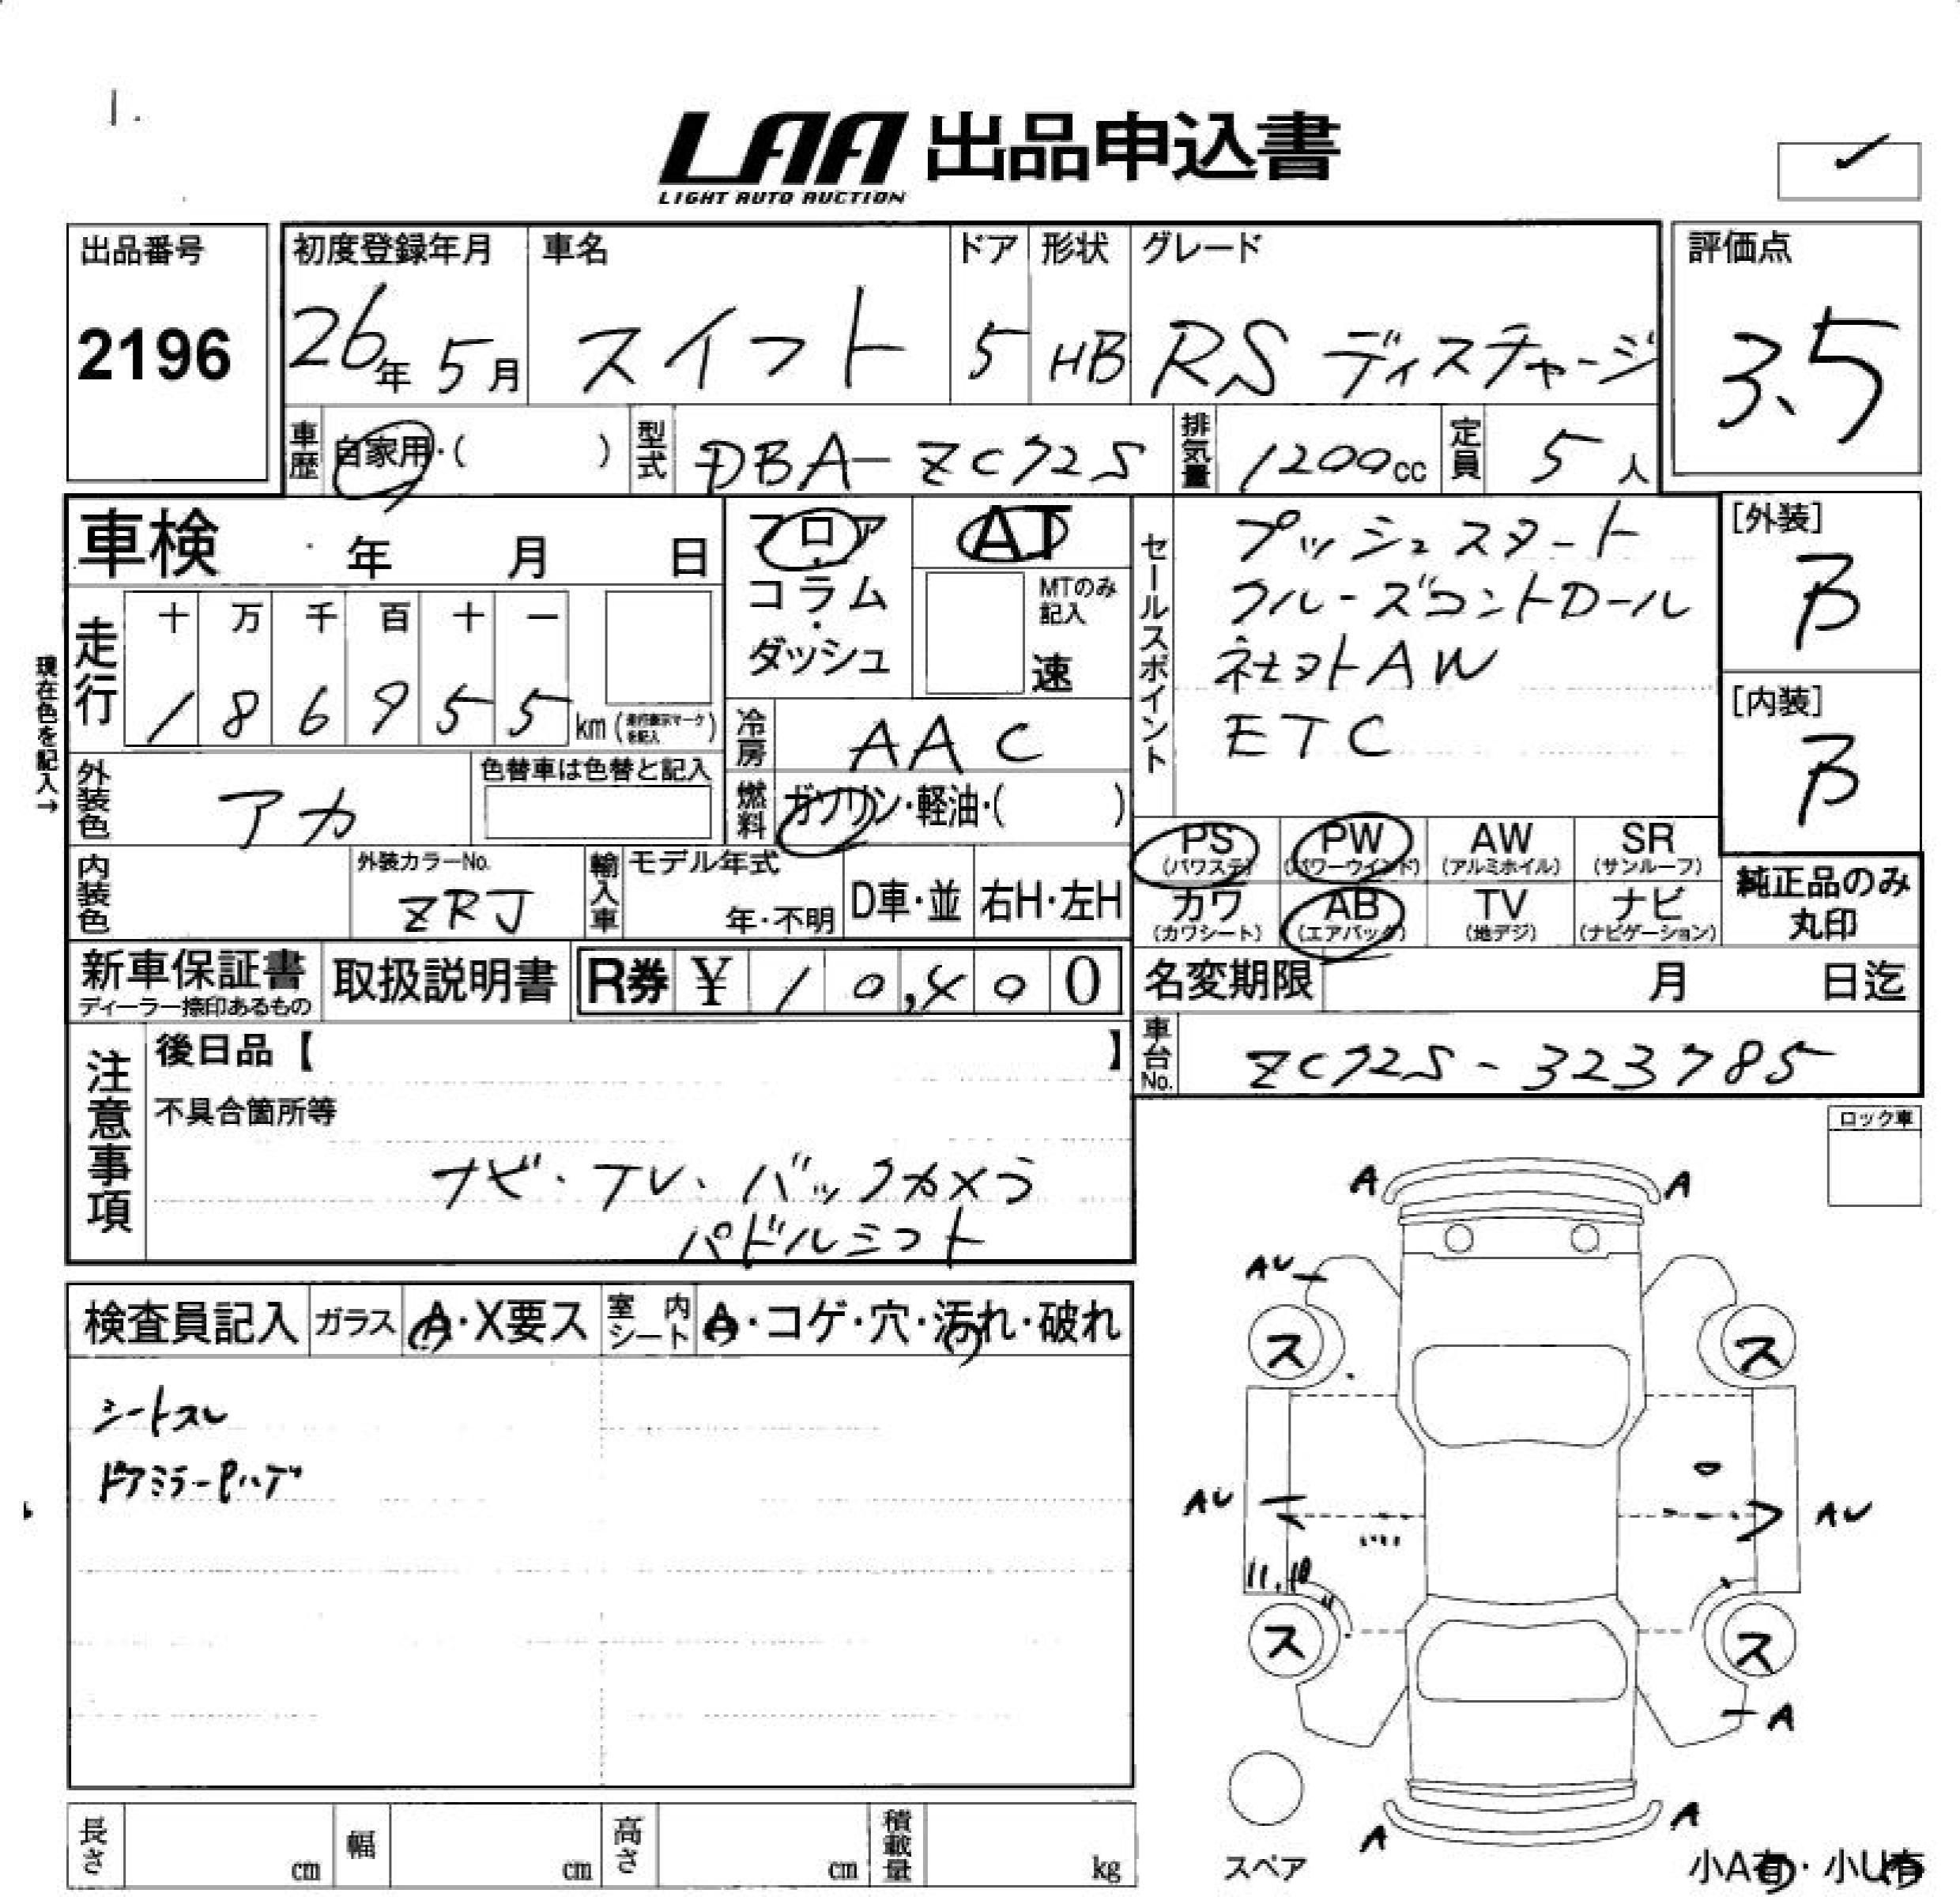 LAA 出品申込書
LIGHT AUTO AUCTION
出品番号
2196
初度登録年月
26年 5月
車名
スイフト
ドア
5
形状
HB
グレード
RS ディスチャージ
評価点
3.5
車歴 自家用・( )
型式 DBA-ZC72S
排気量 1200cc
定員 5人
車検 年 月 日
フロア・コラム・ダッシュ
AT
MTのみ記入
速
セールスポイント
プッシュスタート
クルーズコントロール
AW
ETC
[外装]
B
[内装]
B
現在色を記入→
走行
十 万 千 百 十 一
1 8 6 9 5 5 km
冷房 AAC
外装色 アカ
色替車は色替と記入
燃料 ガソリン・軽油・( )
PS (パワステ)
PW (パワーウインド)
AW (アルミホイル)
SR (サンルーフ)
カワ (カワシート)
AB (エアバッグ)
TV (地デジ)
ナビ (ナビゲーション)
純正品のみ丸印
内装色
外装カラーNo.
ZRJ
輸入車 モデル年式
年・不明
D車・並
右H・左H
新車保証書
ディーラー捺印あるもの
取扱説明書
R券 ¥ 10,400
名変期限 月 日迄
車台No. ZC72S-323785
注意事項
後日品【 】
不具合箇所等
ナビ・TV・バックカメラ
パドルシフト
ロック車
検査員記入
ガラス A・X要ス
室内シート A・コゲ・穴・汚れ・破れ
シートスレ
A A
AU
ス ス
AU AU
ス ス
A
A A
スペア
小A有・小U有
長さ cm
幅 cm
高さ cm
積載量 kg